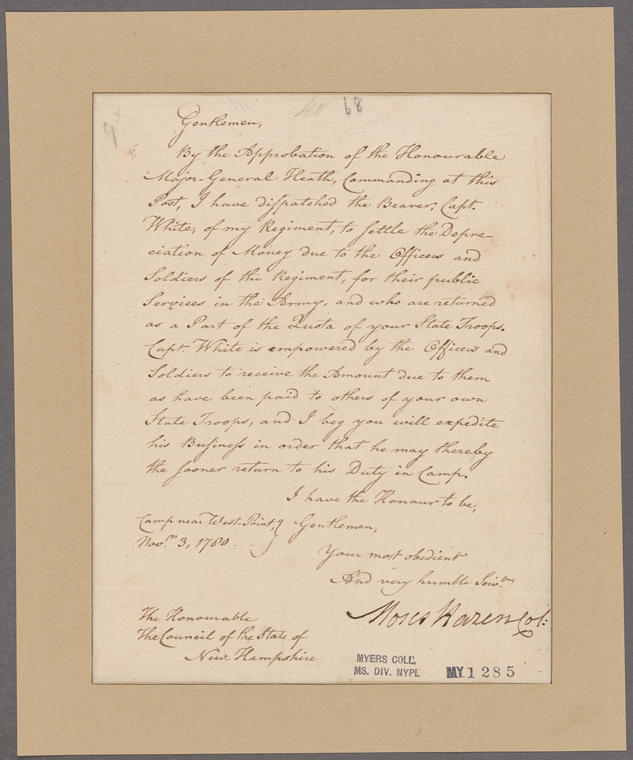 68
Gentlemen,
By the Approbation of the Honourable
Major-General Heath, Commanding at this
Post, I have dispatched the Bearer, Capt.
White, of my Regiment, to settle the Depre-
ciation of Money due to the Officers and
Soldiers of the Regiment, for their public
Services in the Army, and who are returned
as a Part of the Quota of your State Troops.
Capt. White is empowered by the Officers and
Soldiers to receive the Amount due to them
as have been paid to others of your own
State Troops, and I beg you will expedite
his Business in order that he may thereby
the sooner return to his Duty in Camp.
I have the Honour to be,
Camp near West-Point, } Gentlemen,
Novr. 3, 1780.
Your most obedient
And very humble Servt.
Moses Hazen Col:
The Honourable
The Council of the State of
New Hampshire
MYERS COLL.
MS. DIV. NYPL
MY. 1285